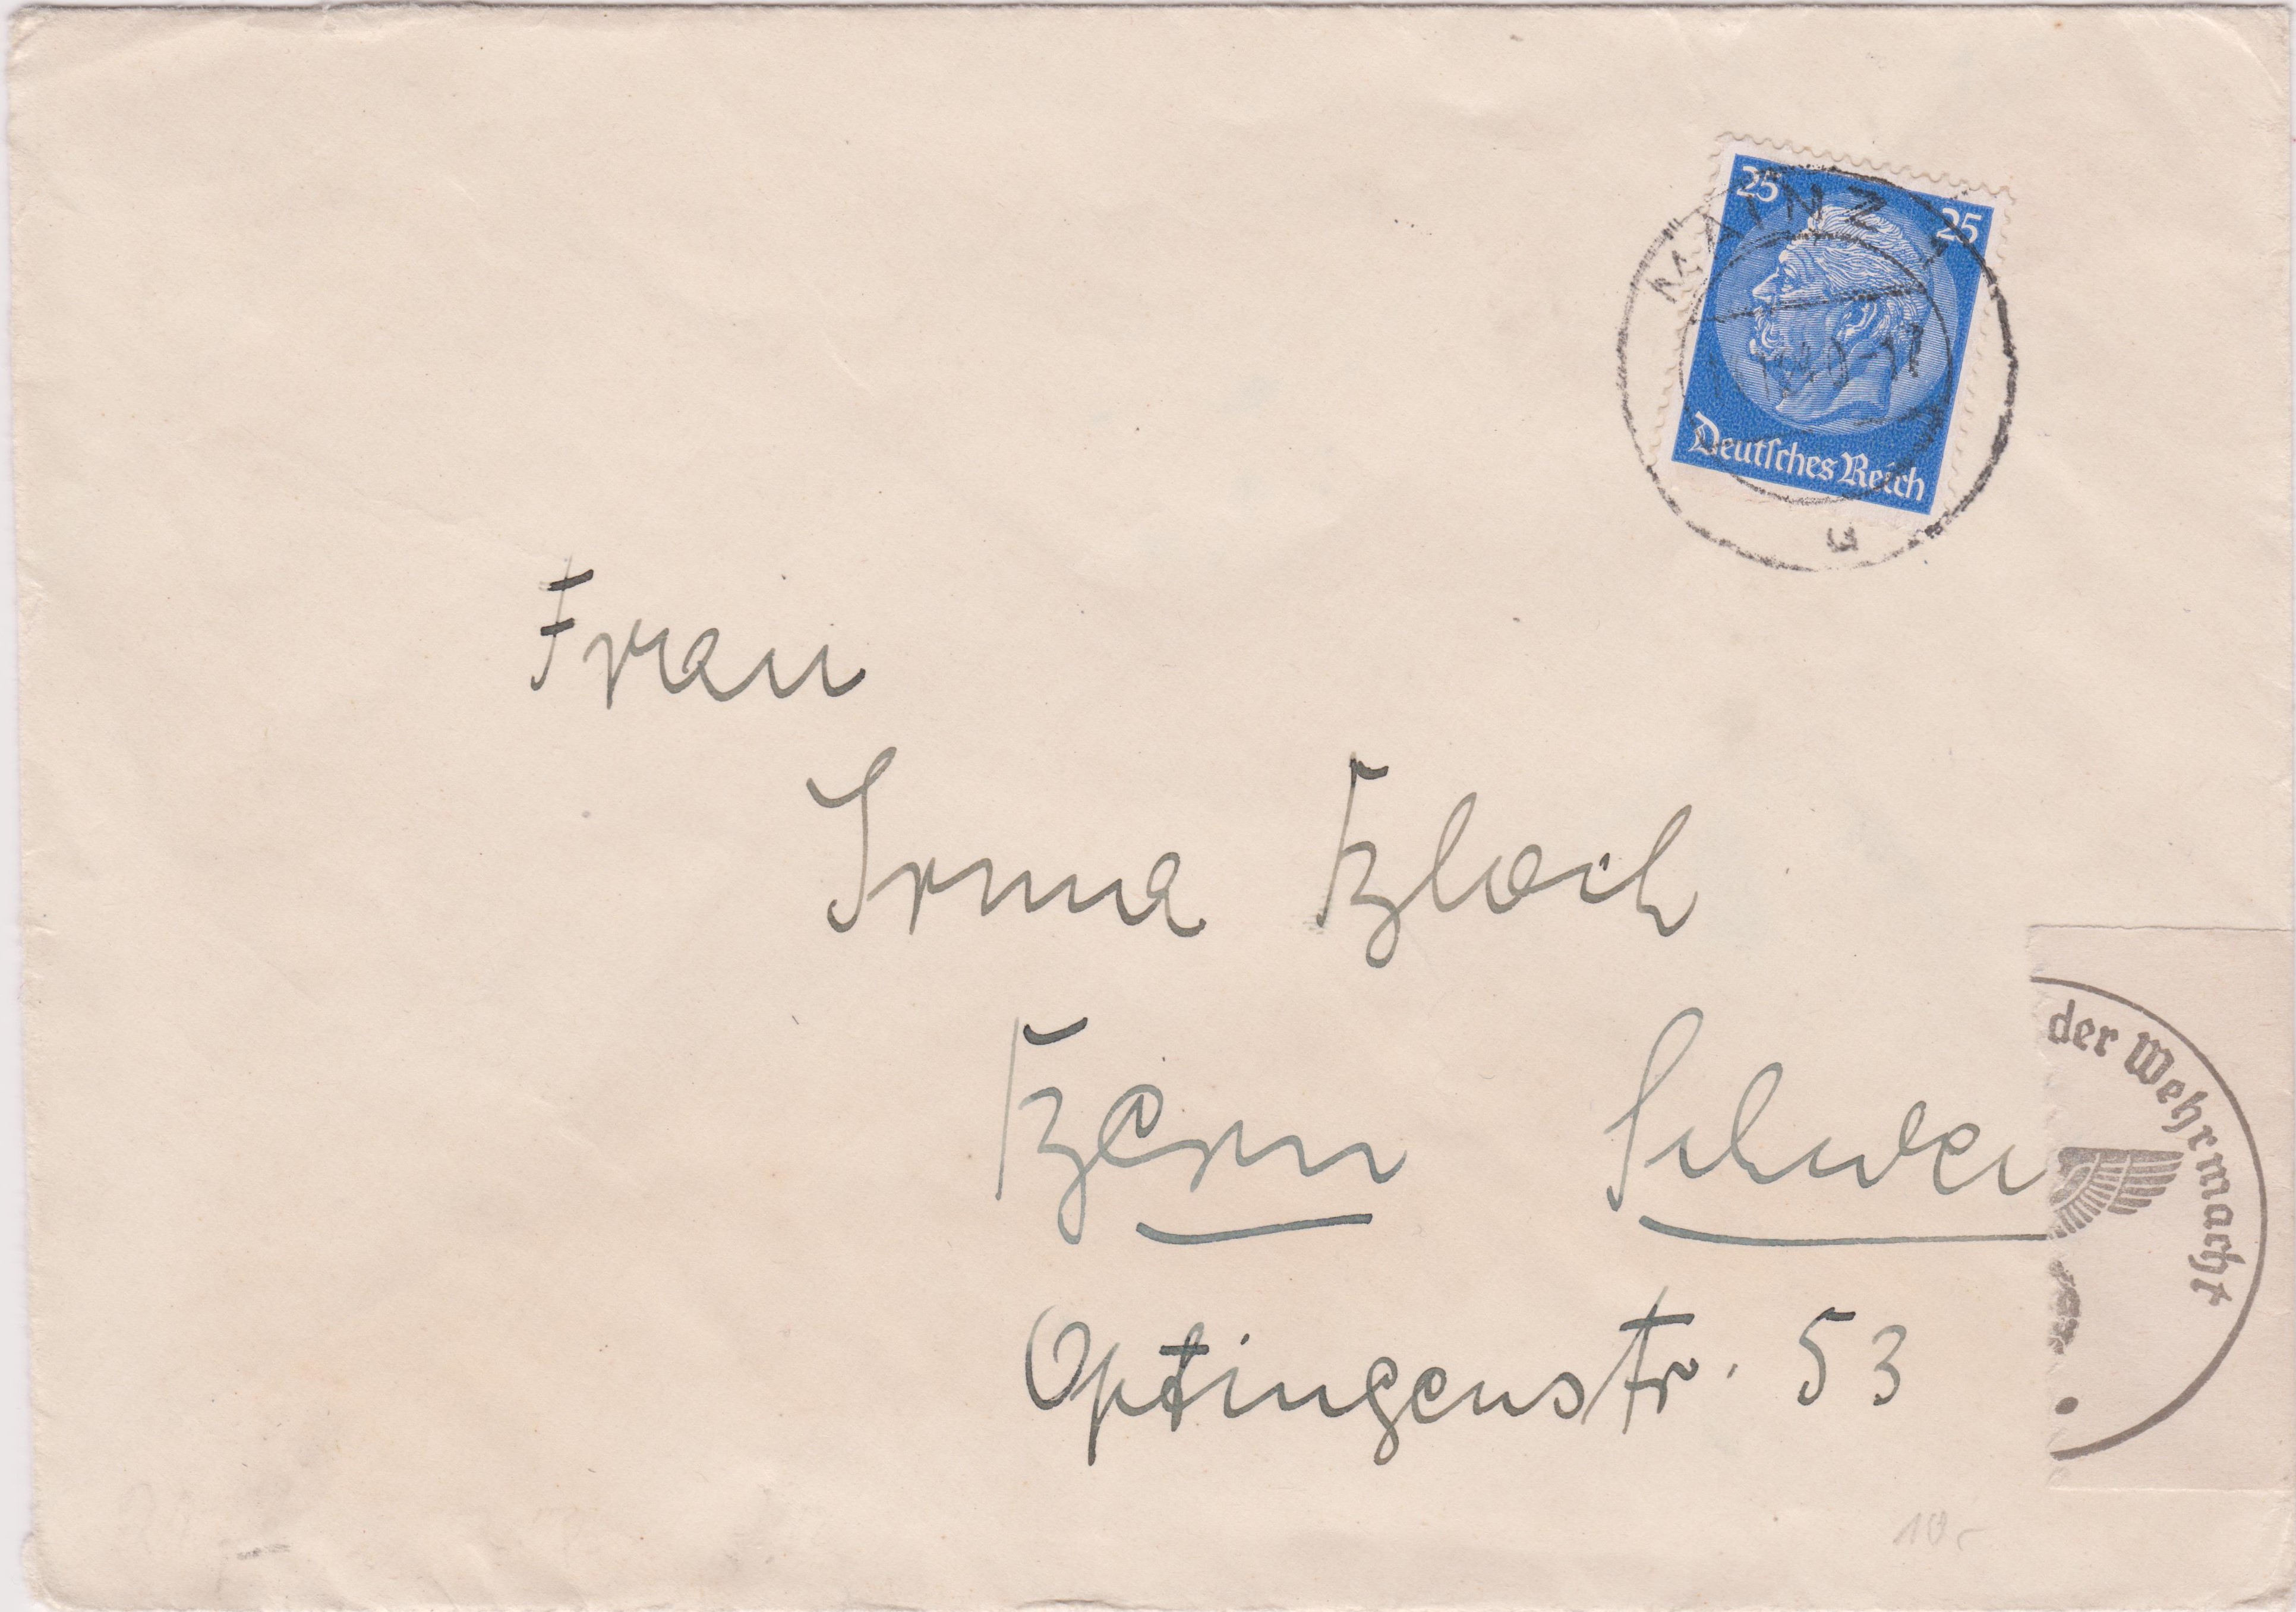 25 25
MAINZ 1
Deutsches Reich
u
Frau
Irma Bloch
Bern Schwei
Optingenstr. 53
der Wehrmacht